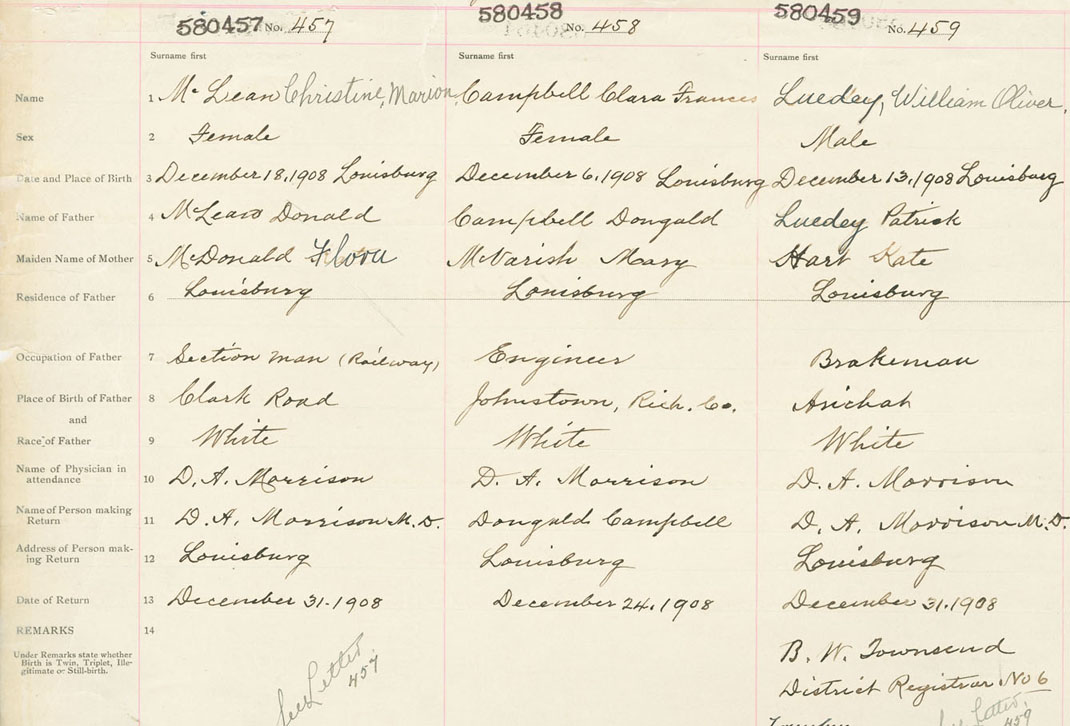 580457 No. 457 580458 No. 458 580459 No. 459
Surname first Surname first Surname first
Name 1 McLean Christine, Marion, Campbell Clara Frances Luedey, William Oliver.
Sex 2 Female Female Male
Date and Place of Birth 3 December 18, 1908 Louisburg December 6, 1908 Louisburg December 13, 1908 Louisburg
Name of Father 4 McLean Donald Campbell Dongald Luedey Patrick
Maiden Name of Mother 5 McDonald Flora McVarish Mary Hart Kate
Residence of Father 6 Louisburg Louisburg Louisburg
Occupation of Father 7 Section man (Railway) Engineer Brakeman
Place of Birth of Father 8 Clark Road Johnstown, Rich. Co. Arichat
and
Race of Father 9 White White White
Name of Physician in
attendance 10 D. A. Morrison D. A. Morrison D. A. Morrison
Name of Person making
Return 11 D. A. Morrison M. D. Dongald Campbell D. A. Morrison M. D.
Address of Person mak-
ing Return 12 Louisburg Louisburg Louisburg
Date of Return 13 December 31-1908 December 24, 1908 December 31, 1908
REMARKS 14
Under Remarks state whether
Birth is Twin, Triplet, Ille-
gitimate or Still-birth.
See Letter
457
B. W. Townsend
District Registrar No 6
See Letter,
459